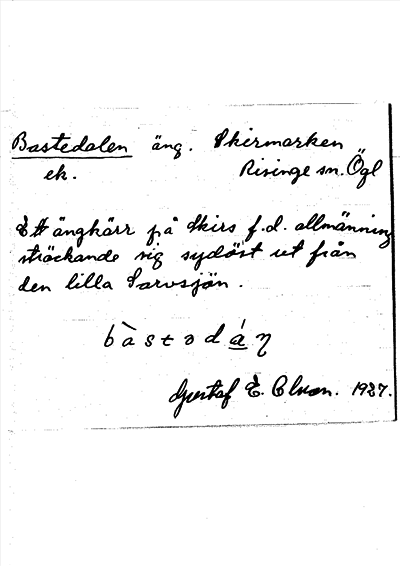 Bastedalen äng. Skirmarken
ek. Risinge sn. Ögl
Ett ängkärr på Skirs f.d. allmänning
sträckande sig sydöst ut från
den lilla Sarvsjön.
bàstədáņ
Gustaf E. Olsson. 1927.